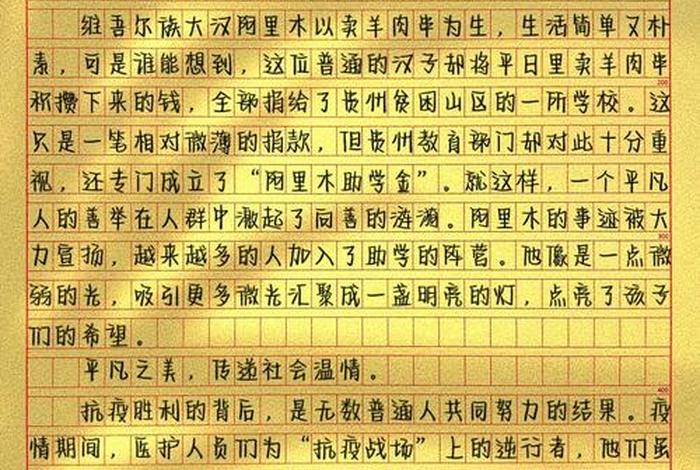 维吾尔族大汉阿里木以卖羊肉串为生，生活简单又朴
素，可是谁能想到，这位普通的汉子却将平日里卖羊肉串
积攒下来的钱，全部捐给了贵州贫困山区的一所学校。这
200
只是一笔相对微薄的捐款，但贵州教育部门却对此十分重
视，还专门成立了“阿里木助学金”。就这样，一个平凡
人的善举在人群中激起了向善的涟漪。阿里木的事迹被大
300
力宣扬，越来越多的人加入了助学的阵营。他像是一点微
弱的光，吸引更多微光汇聚成一盏明亮的灯，点亮了孩子
们的希望。
平凡之美，传递社会温情。
400
抗疫胜利的背后，是无数普通人共同努力的结果。疫
情期间，医护人员们为“抗疫战场”上的逆行者，他们虽